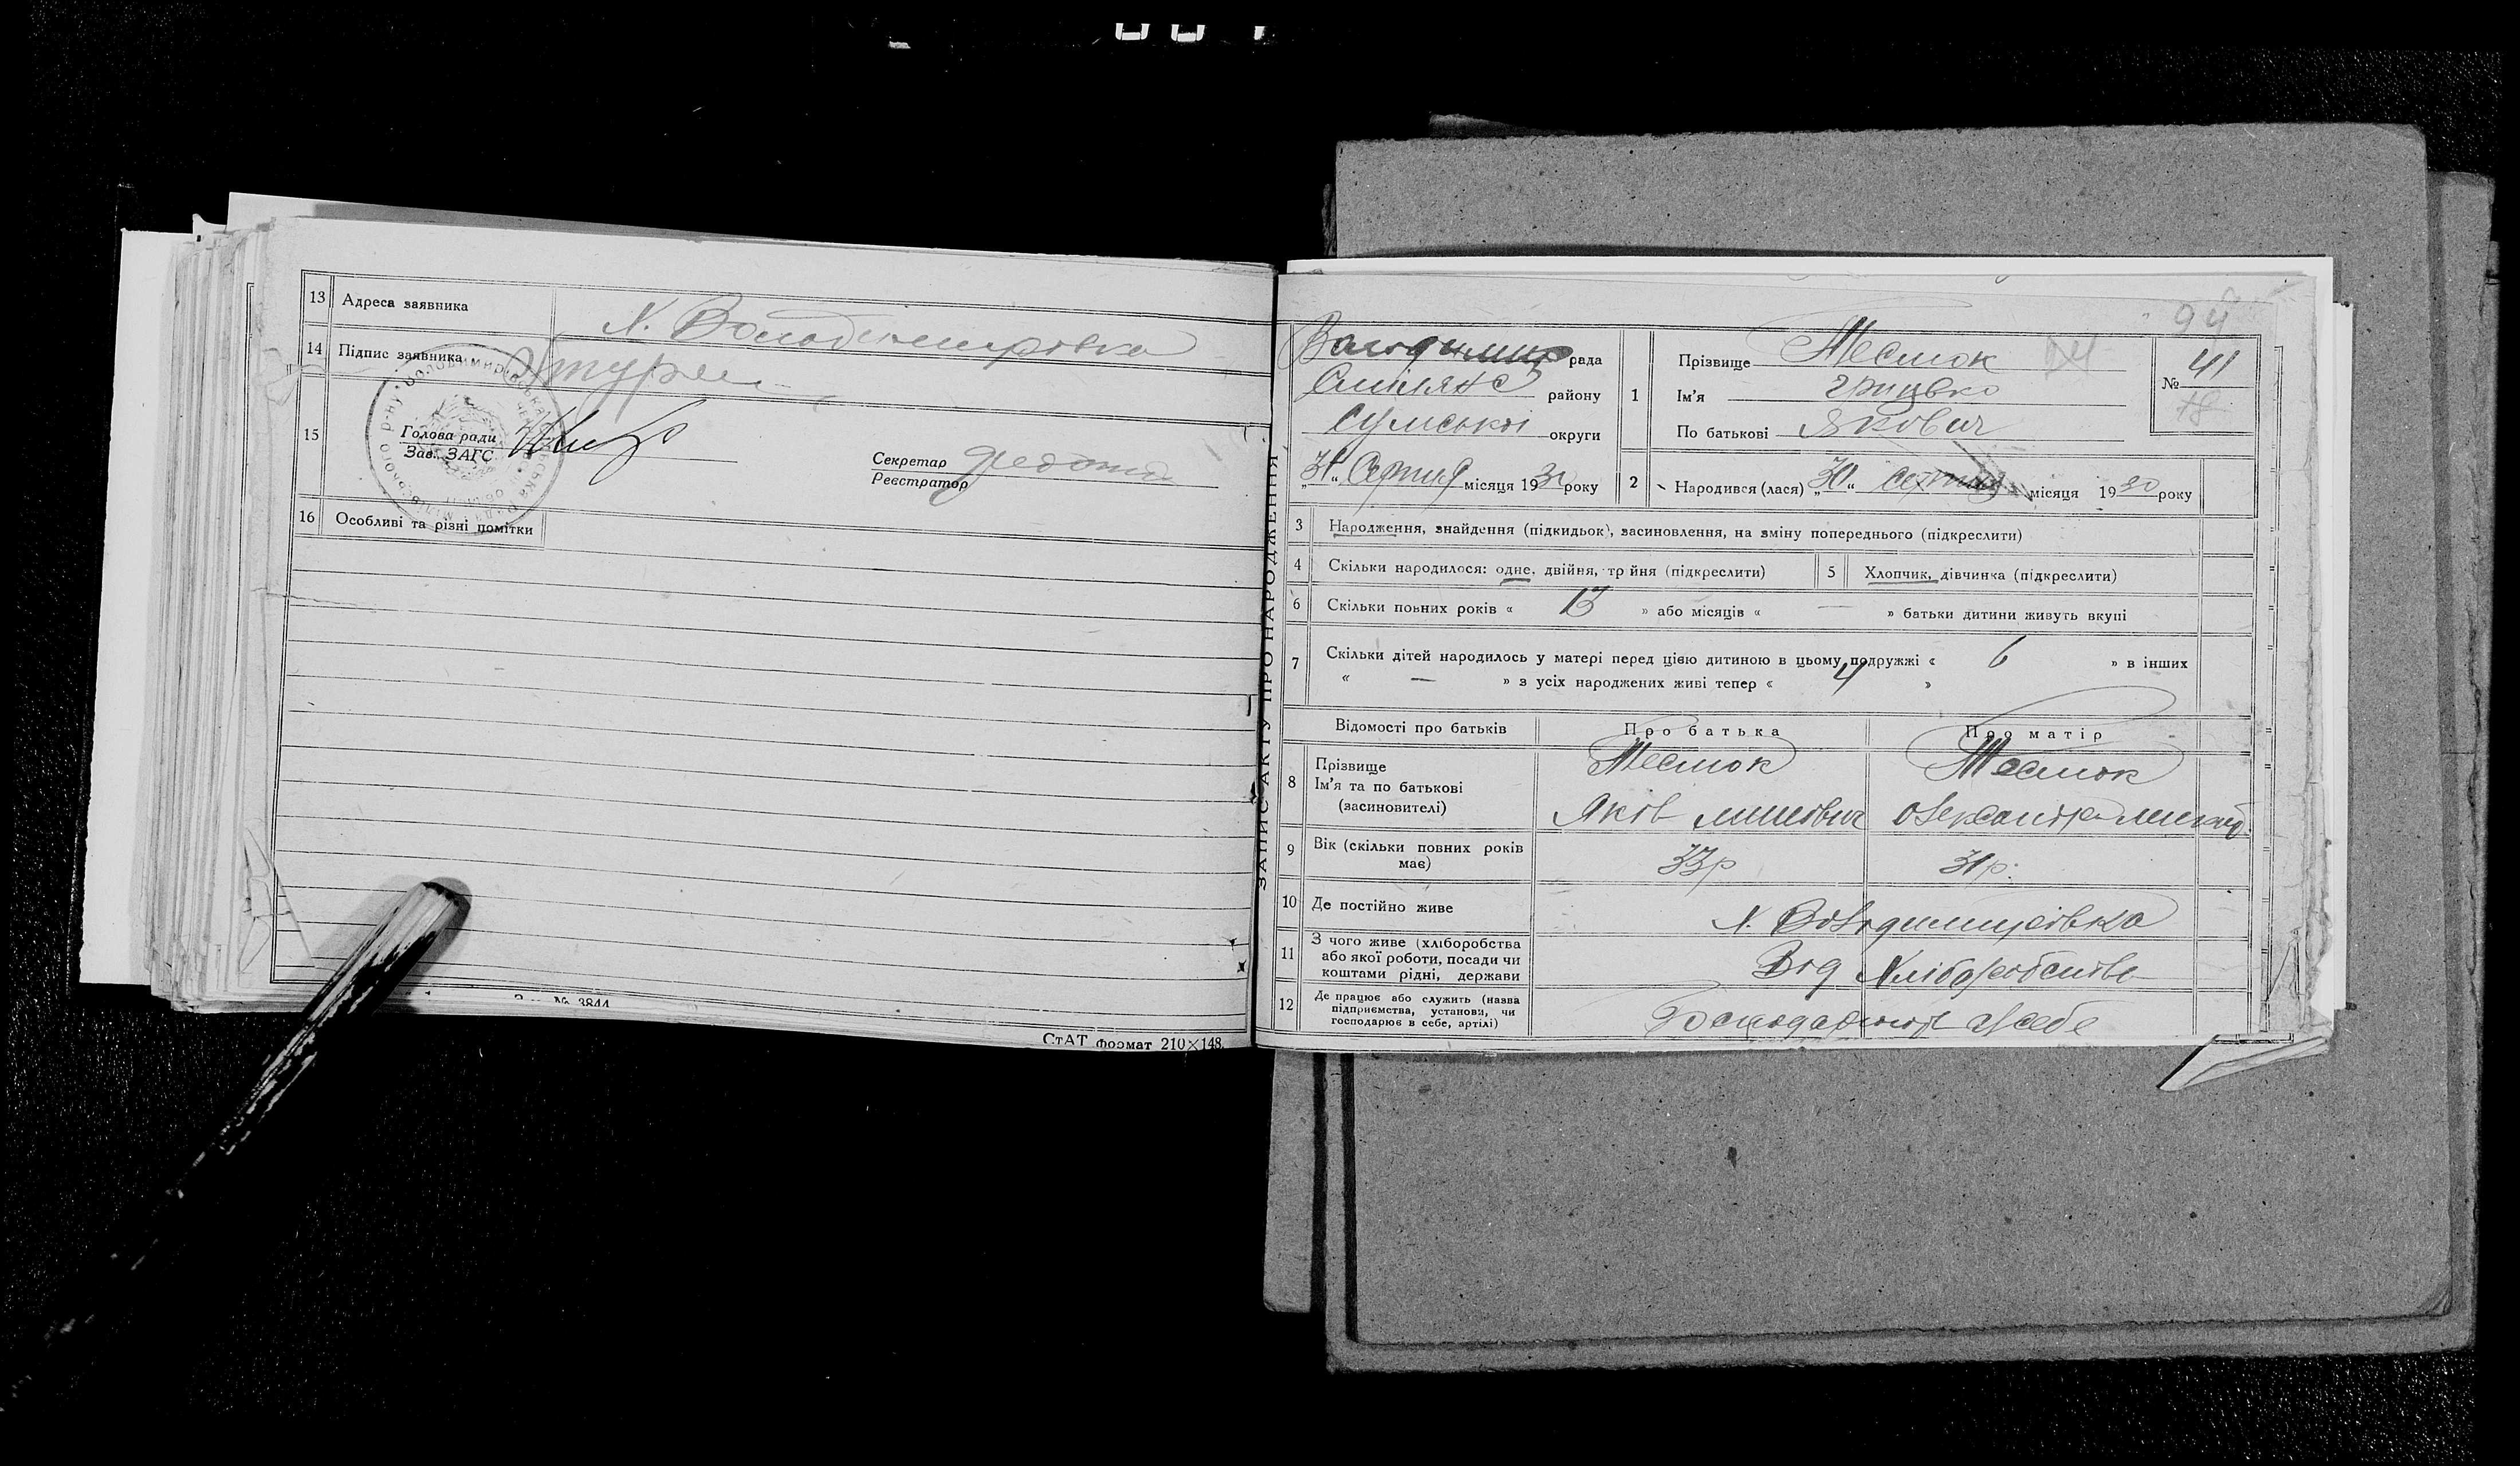 13 Адреса заявника Х. Володимирівка
14 Підпис заявника
15 Голова ради
Зав. ЗАГС
Секретар
Реєстратор
16 Особливі та різні помітки
Зам. № 3844
СтАТ формат 210×148.
ЗАПИС АКТУ ПРО НАРОДЖЕННЯ
94
Володимир рада
району
Сумської округи
„31“ Серпня місяця 1930 року
1 Прізвище
Ім'я Грицько
По батькові Якович
№ 41
2 Народився (лася) „30“ Серпня місяця 1930 року
3 Народження, знайдення (підкидьок), засиновлення, на зміну попереднього (підкреслити)
4 Скільки народилося: одне, двійня, тройня (підкреслити)
5 Хлопчик, дівчинка (підкреслити)
6 Скільки повних років « 13 » або місяців « — » батьки дитини живуть вкупі
7 Скільки дітей народилось у матері перед цією дитиною в цьому подружжі « 6 » в інших
« — » з усіх народжених живі тепер « 4 »
Відомості про батьків Про батька Про матір
8 Прізвище
Ім'я та по батькові
(засиновителі)
Яків Олександра
9 Вік (скільки повних років
має)
33р 31р.
10 Де постійно живе Х. Володимирівка
11 З чого живе (хліборобства
або якої роботи, посади чи
коштами рідні, держави
Від Хліборобства
12 Де працює або служить (назва
підприємства, установи, чи
господарює в себе, артілі)
Господарюють у себе